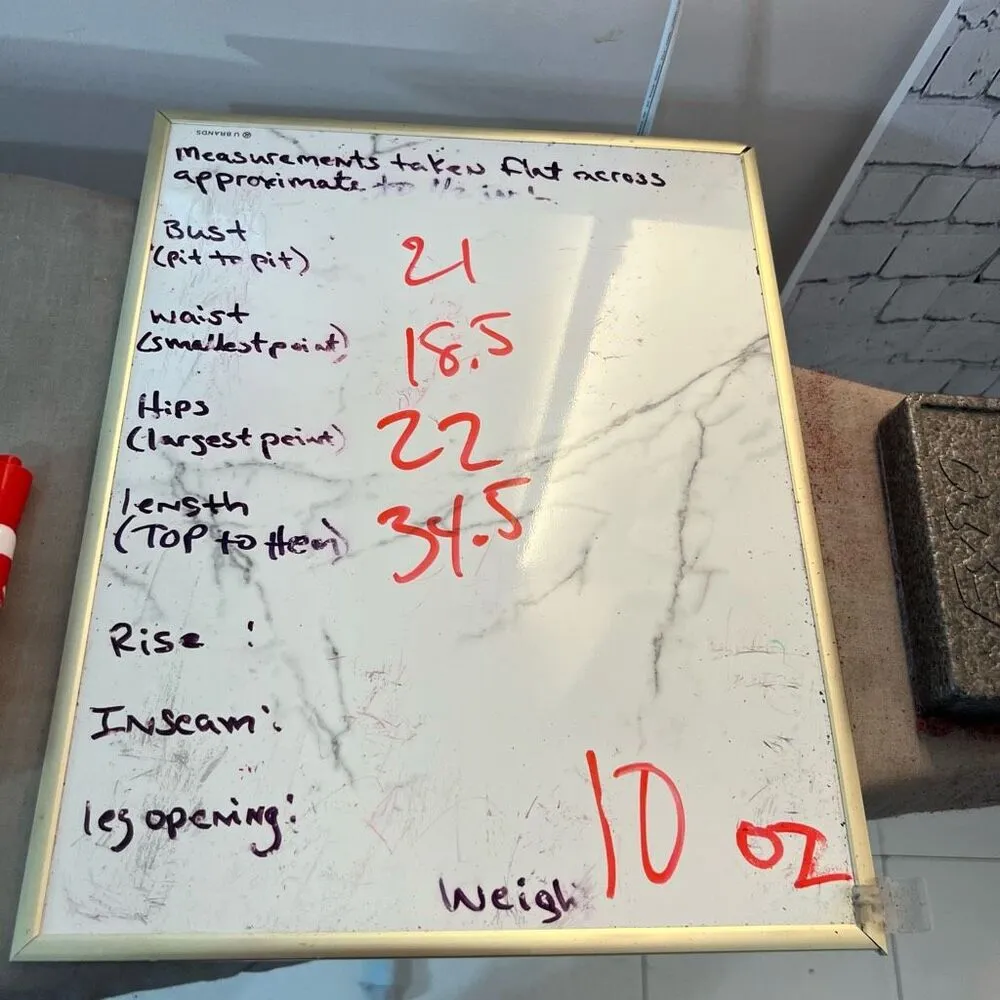 U BRANDS
Measurements taken flat across
approximate to the inch
Bust
(pit to pit)
21
waist
(smallest point)
18.5
Hips
(largest point)
22
length
(TOP to Hem)
34.5
Rise :
Inseam:
leg opening:
10 oz
Weigh